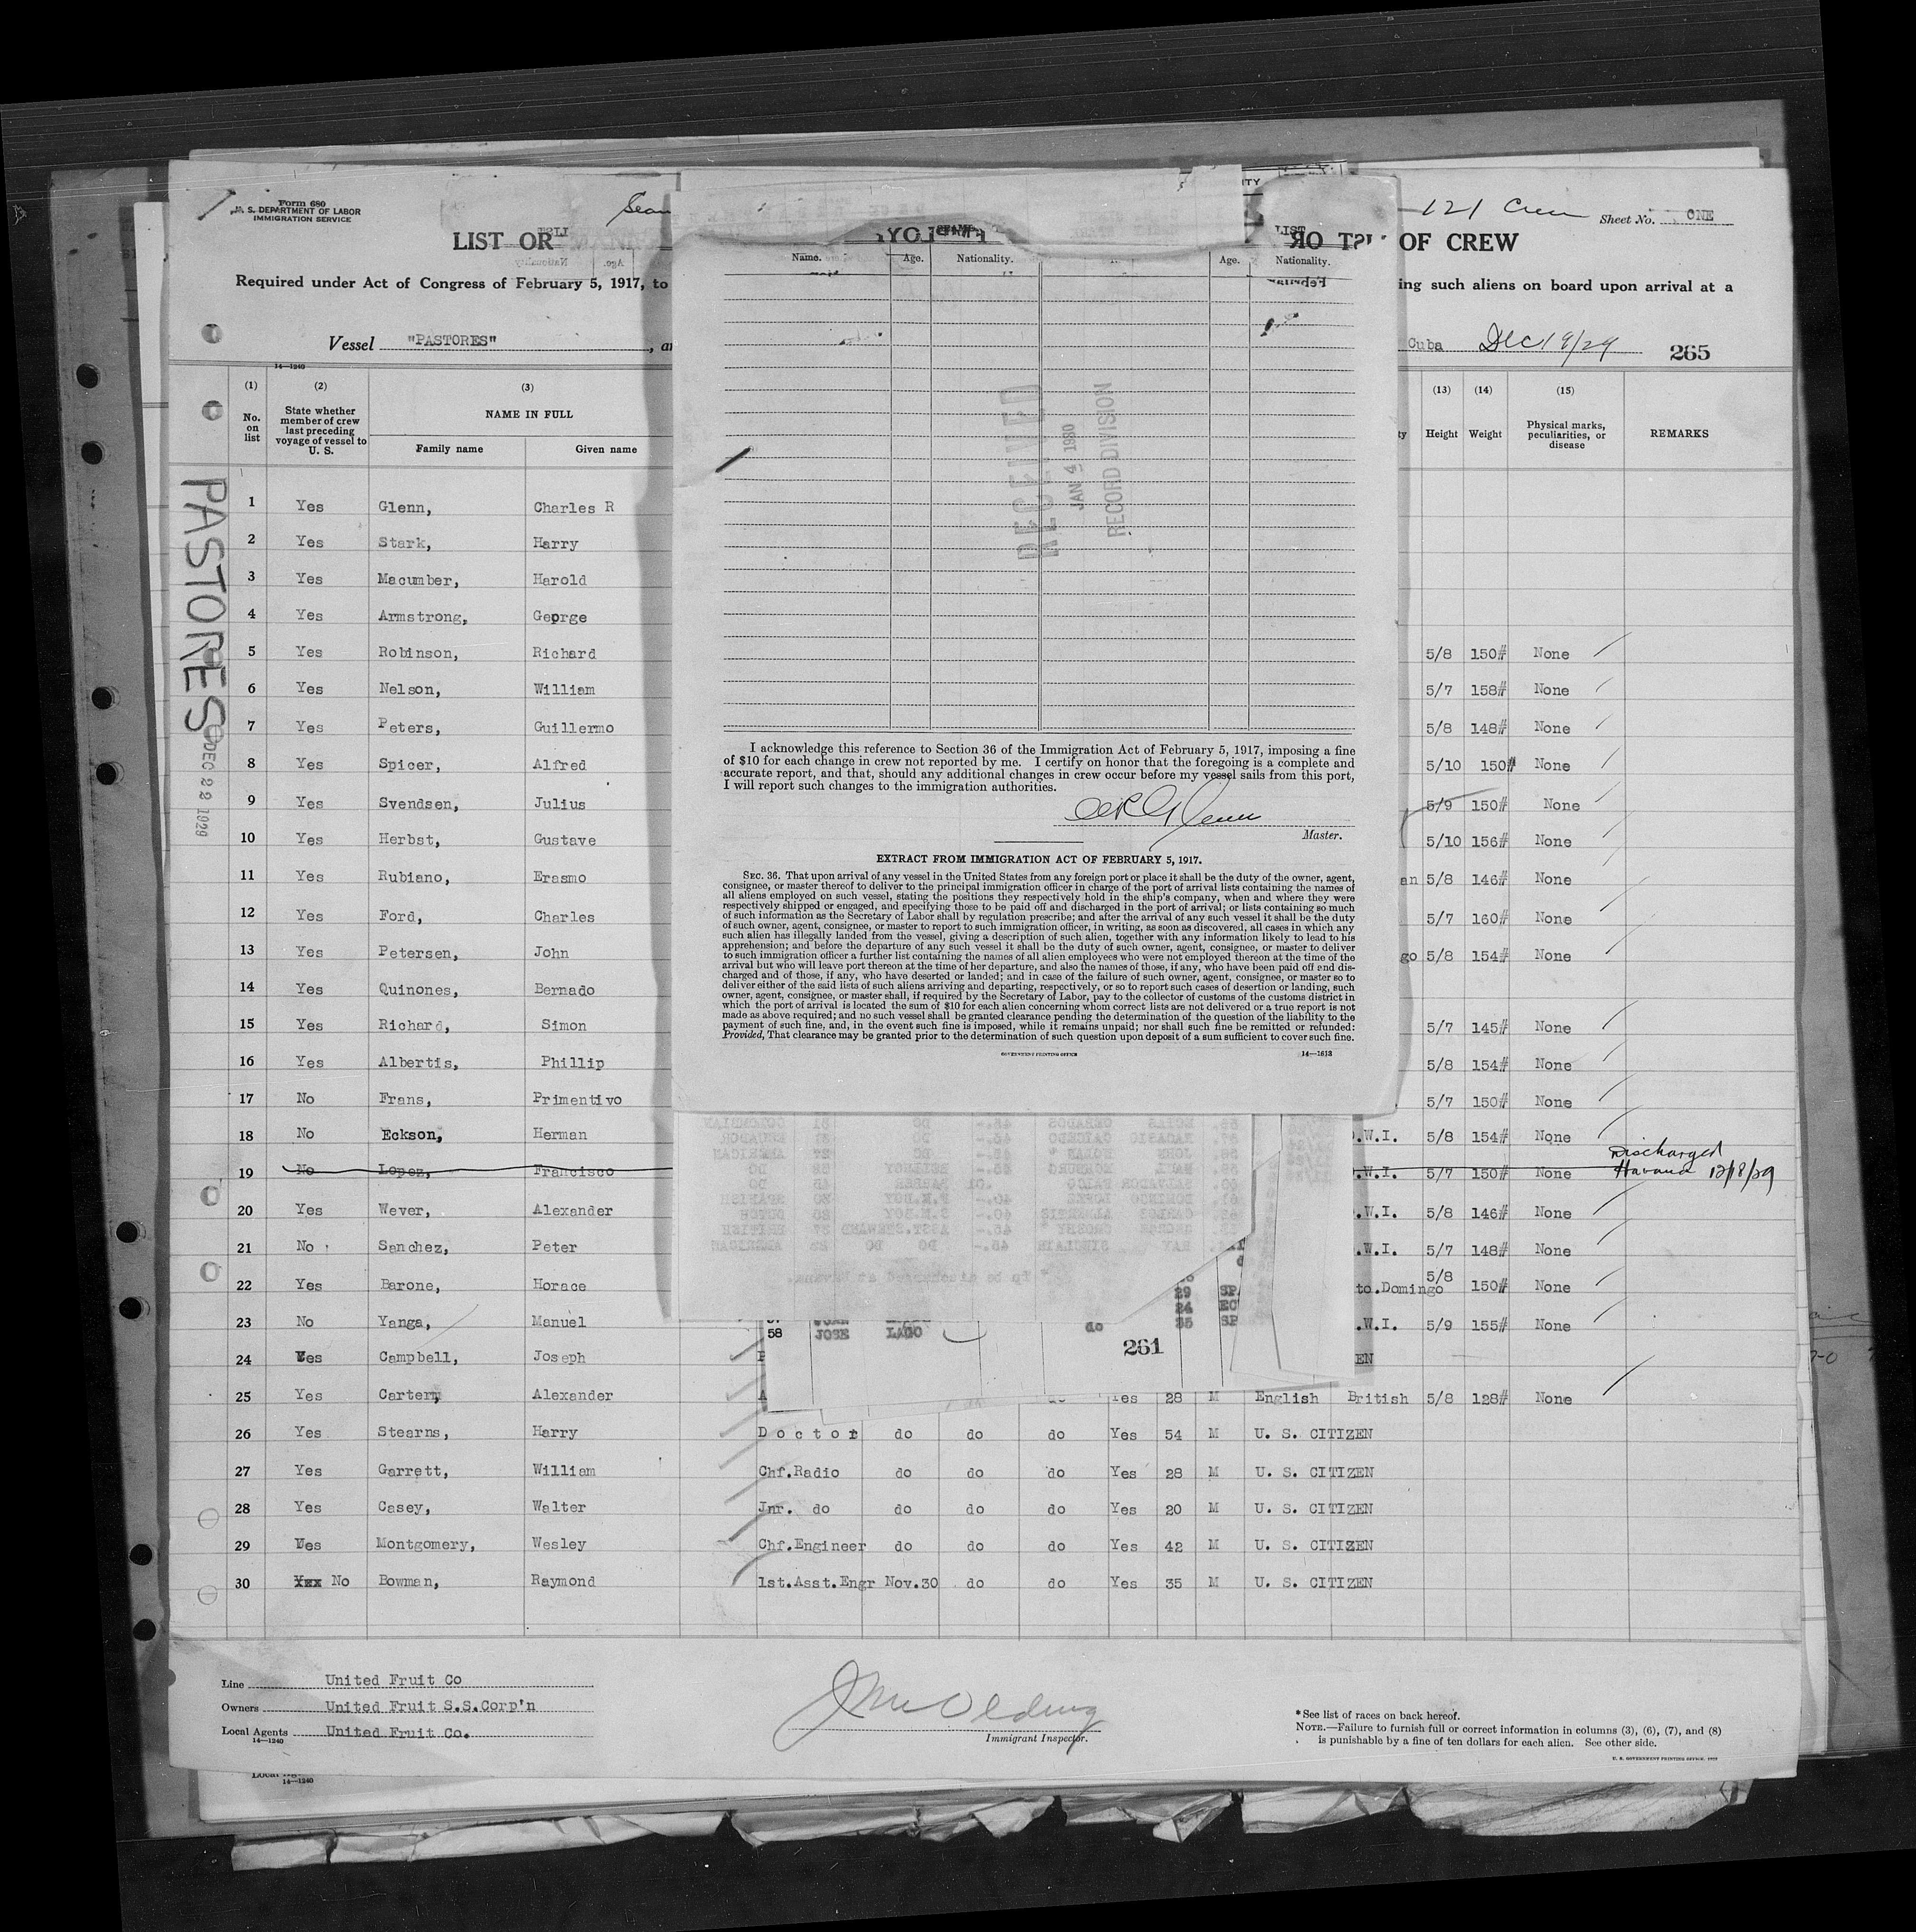 Form 680
U. S. DEPARTMENT OF LABOR
IMMIGRATION SERVICE
121 Crew
Sheet No. ONE
LIST OR
OF CREW
Required under Act of Congress of February 5, 1917, to
ing such aliens on board upon arrival at a
Vessel "PASTORES"
Cuba Dec 19/29
265
14—1240
(1) (2) (3) (13) (14) (15)
No. on list
State whether member of crew last preceding voyage of vessel to U. S.
NAME IN FULL
Family name Given name
Height Weight
Physical marks, peculiarities, or disease
REMARKS
PASTORES
DEC 22 1929
1 Yes Glenn, Charles R
2 Yes Stark, Harry
3 Yes Macumber, Harold
4 Yes Armstrong, George
5 Yes Robinson, Richard 5/8 150# None
6 Yes Nelson, William 5/7 158# None
7 Yes Peters, Guillermo 5/8 148# None
8 Yes Spicer, Alfred 5/10 150# None
9 Yes Svendsen, Julius 5/9 150# None
10 Yes Herbst, Gustave 5/10 156# None
11 Yes Rubiano, Erasmo an 5/8 146# None
12 Yes Ford, Charles 5/7 160# None
13 Yes Petersen, John go 5/8 154# None
14 Yes Quinones, Bernado
15 Yes Richard, Simon 5/7 145# None
16 Yes Albertis, Phillip 5/8 154# None
17 No Frans, Primentivo 5/7 150# None
18 No Eckson, Herman .W.I. 5/8 154# None
19 No Lopez, Francisco .W.I. 5/7 150# None Discharged Havana 12/18/29
20 Yes Wever, Alexander .W.I. 5/8 146# None
21 No Sanchez, Peter .W.I. 5/7 148# None
22 Yes Barone, Horace to.Domingo 5/8 150# None
23 No Yanga, Manuel .W.I. 5/9 155# None
24 Yes Campbell, Joseph EN
25 Yes Carter, Alexander Yes 28 M English British 5/8 128# None
26 Yes Stearns, Harry Doctor do do do Yes 54 M U. S. CITIZEN
27 Yes Garrett, William Chf.Radio do do do Yes 28 M U. S. CITIZEN
28 Yes Casey, Walter Jnr. do do do do Yes 20 M U. S. CITIZEN
29 Yes Montgomery, Wesley Chf.Engineer do do do Yes 42 M U. S. CITIZEN
30 Yes No Bowman, Raymond 1st.Asst.Engr Nov.30 do do Yes 35 M U. S. CITIZEN
Line United Fruit Co
Owners United Fruit S.S.Corp'n
Local Agents United Fruit Co.
14—1240
Immigrant Inspector.
* See list of races on back hereof.
NOTE.—Failure to furnish full or correct information in columns (3), (6), (7), and (8)
is punishable by a fine of ten dollars for each alien. See other side.
U. S. GOVERNMENT PRINTING OFFICE
14—1240
Name. Age. Nationality. Age. Nationality.
RECEIVED
JAN 4 1930
RECORD DIVISION
I acknowledge this reference to Section 36 of the Immigration Act of February 5, 1917, imposing a fine
of $10 for each change in crew not reported by me. I certify on honor that the foregoing is a complete and
accurate report, and that, should any additional changes in crew occur before my vessel sails from this port,
I will report such changes to the immigration authorities.
Master.
EXTRACT FROM IMMIGRATION ACT OF FEBRUARY 5, 1917.
SEC. 36. That upon arrival of any vessel in the United States from any foreign port or place it shall be the duty of the owner, agent,
consignee, or master thereof to deliver to the principal immigration officer in charge of the port of arrival lists containing the names of
all aliens employed on such vessel, stating the positions they respectively hold in the ship's company, when and where they were
respectively shipped or engaged, and specifying those to be paid off and discharged in the port of arrival; or lists containing so much
of such information as the Secretary of Labor shall by regulation prescribe; and after the arrival of any such vessel it shall be the duty
of such owner, agent, consignee, or master to report to such immigration officer, in writing, as soon as discovered, all cases in which any
such alien has illegally landed from the vessel, giving a description of such alien, together with any information likely to lead to his
apprehension; and before the departure of any such vessel it shall be the duty of such owner, agent, consignee, or master to deliver
to such immigration officer a further list containing the names of all alien employees who were not employed thereon at the time of the
arrival but who will leave port thereon at the time of her departure, and also the names of those, if any, who have been paid off and dis-
charged and of those, if any, who have deserted or landed; and in case of the failure of such owner, agent, consignee, or master so to
deliver either of the said lists of such aliens arriving and departing, respectively, or so to report such cases of desertion or landing, such
owner, agent, consignee, or master shall, if required by the Secretary of Labor, pay to the collector of customs of the customs district in
which the port of arrival is located the sum of $10 for each alien concerning whom correct lists are not delivered or a true report is not
made as above required; and no such vessel shall be granted clearance pending the determination of the question of the liability to the
payment of such fine, and, in the event such fine is imposed, while it remains unpaid; nor shall such fine be remitted or refunded:
Provided, That clearance may be granted prior to the determination of such question upon deposit of a sum sufficient to cover such fine.
GOVERNMENT PRINTING OFFICE
14—1613
29 SP
24 EC
58 JOSE LAGO do 35 SP
261